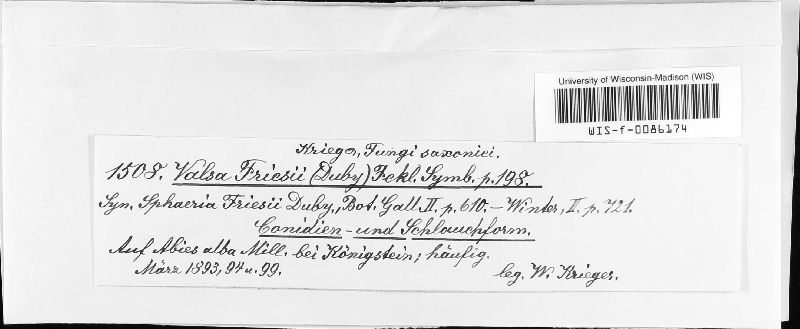 University of Wisconsin-Madison (WIS)
WIS-f-0086174
Krieger, Fungi saxonici.
1508. Valsa Friesii (Duby) Fckl. Symb. p. 198.
Syn. Sphaeria Friesii Duby, Bot. Gall. II. p. 610. – Winter, II. p. 721.
Conidien- und Schlauchform.
Auf Abies alba Mill. bei Königstein; häufig.
März 1893, 94 u. 99.
leg. W. Krieger.